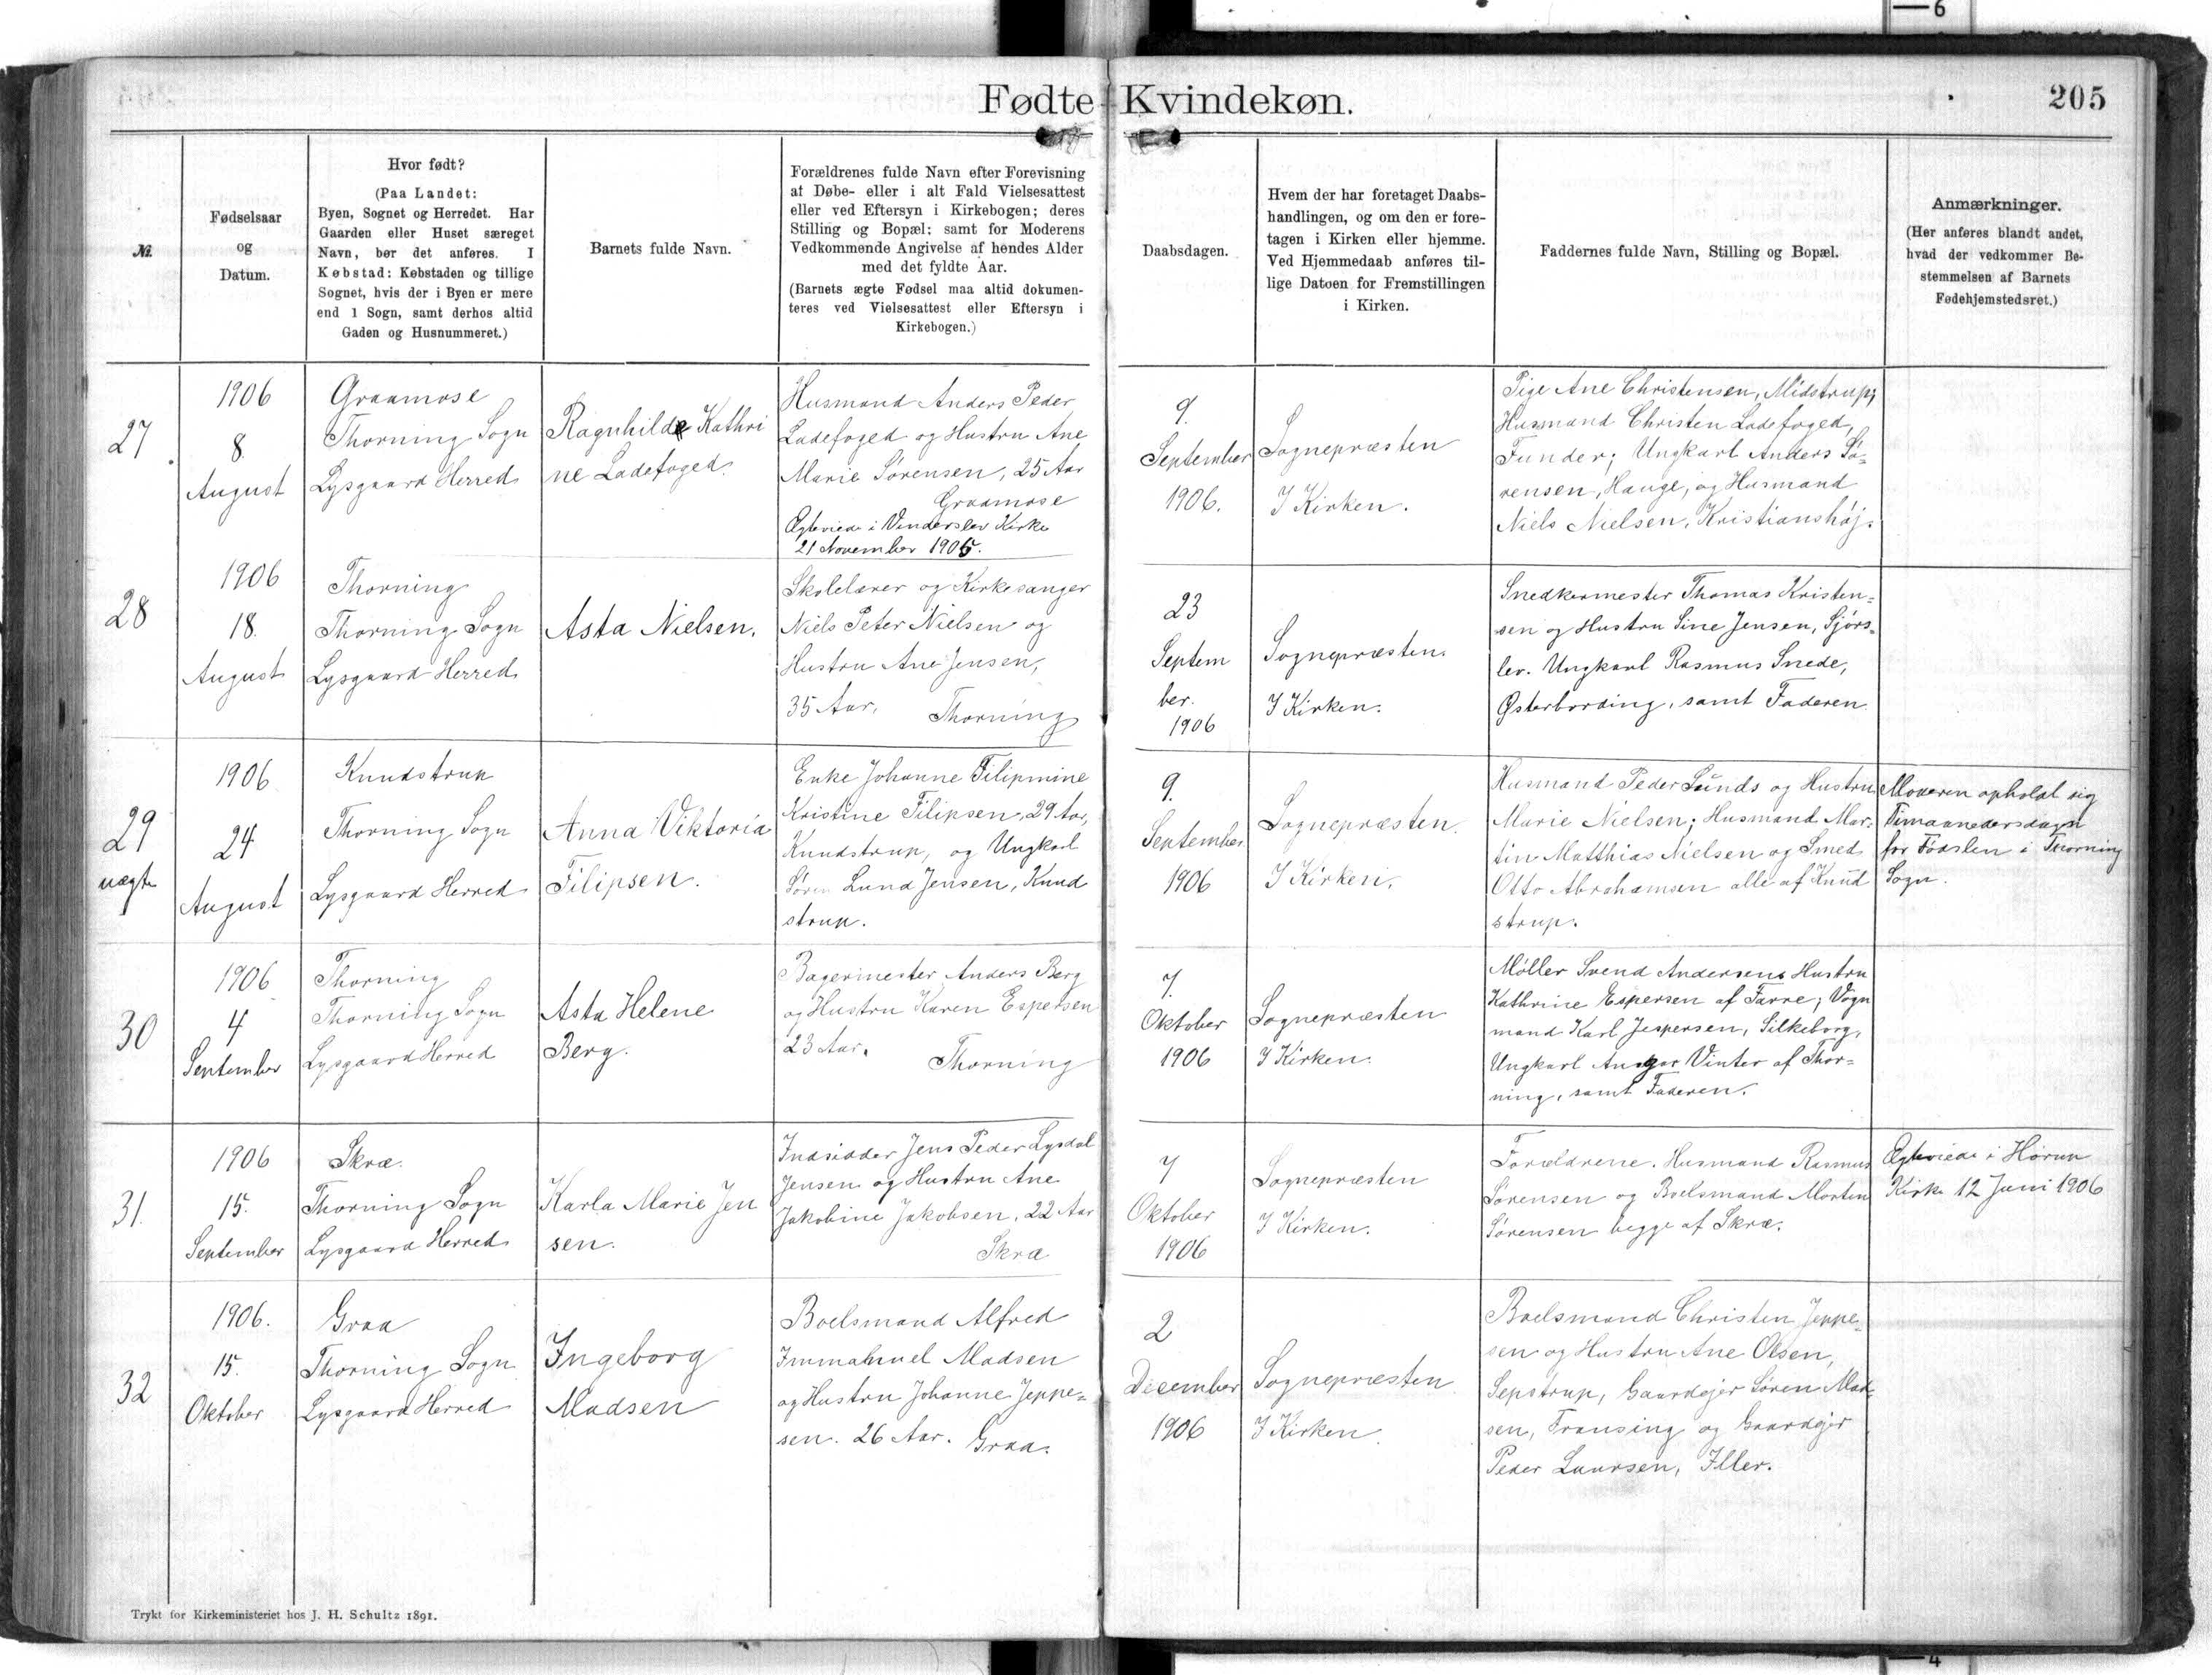 6
Fødte Kvindekøn.
205
№.
Fødselsaar
og
Datum.
Hvor født?
(Paa Landet:
Byen, Sognet og Herredet. Har
Gaarden eller Huset særeget
Navn, bør det anføres. I
Købstad: Købstaden og tillige
Sognet, hvis der i Byen er mere
end 1 Sogn, samt derhos altid
Gaden og Husnummeret.)
Barnets fulde Navn.
Forældrenes fulde Navn efter Forevisning
af Døbe- eller i alt Fald Vielsesattest
eller ved Eftersyn i Kirkebogen; deres
Stilling og Bopæl; samt for Moderens
Vedkommende Angivelse af hendes Alder
med det fyldte Aar.
(Barnets ægte Fødsel maa altid dokumen-
teres ved Vielsesattest eller Eftersyn i
Kirkebogen.)
Daabsdagen.
Hvem der har foretaget Daabs-
handlingen, og om den er fore-
tagen i Kirken eller hjemme.
Ved Hjemmedaab anføres til-
lige Datoen for Fremstillingen
i Kirken.
Faddernes fulde Navn, Stilling og Bopæl.
Anmærkninger.
(Her anføres blandt andet,
hvad der vedkommer Be-
stemmelsen af Barnets
Fødehjemstedsret.)
27
1906
8.
August
Graamose
Thorning Sogn
Lysgaard Herred
Ragnhilde Kathri
ne Ladefoged.
Husmand Anders Peder
Ladefoged og Hustru Ane
Marie Sørensen, 25 Aar
Graamose
Ægteviede i Vinderslev Kirke
21 November 1905.
9.
September
1906.
Sognepræsten
I Kirken.
Pige Ane Christensen, Midstrup;
Husmand Christen Ladefoged,
Funder; Ungkarl Anders Sø=
rensen, Hauge, og Husmand
Niels Nielsen, Kristianshøj.
28
1906
18.
August
Thorning
Thorning Sogn
Lysgaard Herred
Asta Nielsen.
Skolelærer og Kirkesanger
Niels Peter Nielsen og
Hustru Ane Jensen,
35 Aar. Thorning
23
Septem
ber.
1906
Sognepræsten.
I Kirken.
Snedkermester Thomas Kristen=
sen og Hustru Sine Jensen, Sjørs=
lev. Ungkarl Rasmus Snede,
Østerbording, samt Faderen
29
uægte
1906
24
August
Knudstrup
Thorning Sogn
Lysgaard Herred
Anna Viktoria
Filipsen.
Enke Johanne Filipmine
Kristine Filipsen, 29 Aar,
Knudstrup, og Ungkarl
Søren Lund Jensen, Knud
strup.
9.
September
1906
Sognepræsten.
I Kirken.
Husmand Peder Lunds og Hustru
Marie Nielsen; Husmand Mar=
tin Matthias Nielsen og Smed
Otto Abrahamsen alle af Knud
strup.
Moderen opholdt sig
Timaanedersdagen
før Fødslen i Thorning
Sogn.
30
1906
4
September
Thorning
Thorning Sogn
Lysgaard Herred
Asta Helene
Berg.
Bagermester Anders Berg
og Hustru Karen Espersen
23 Aar. Thorning
7.
Oktober
1906
Sognepræsten
I Kirken.
Møller Svend Andersens Hustru
Kathrine Espersen af Farre; Vogn
mand Karl Jespersen, Silkeborg,
Ungkarl Ansgar Vinter af Thor=
ning, samt Faderen.
31.
1906
15.
September
Skræ.
Thorning Sogn
Lysgaard Herred
Karla Marie Jen
sen.
Indsidder Jens Peder Lysdal
Jensen og Hustru Ane
Jakobine Jakobsen, 22 Aar
Skræ
7
Oktober
1906
Sognepræsten
I Kirken.
Forældrene. Husmand Rasmus
Sørensen og Boelsmand Morten
Sørensen begge af Skræ.
Ægteviede i Hørup
Kirke 12 Juni 1906
32
1906.
15.
Oktober
Graa
Thorning Sogn
Lysgaard Herred
Ingeborg
Madsen
Boelsmand Alfred
Immanuel Madsen
og Hustru Johanne Jeppe=
sen. 26 Aar. Graa.
2
December
1906
Sognepræsten
I Kirken.
Boelsmand Christen Jeppe=
sen og Hustru Ane Olsen,
Sepstrup, Gaardejer Søren Mad=
sen, Fransing og Gaardejer
Peder Laursen, Iller.
Trykt for Kirkeministeriet hos J. H. Schultz 1891.
4